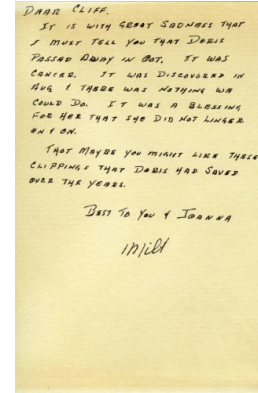 DEAR CLIFF,
IT IS WITH GREAT SADNESS THAT
I MUST TELL YOU THAT DORIS
PASSED AWAY IN OCT, IT WAS
CANCER. IT WAS DISCOVERED IN
AUG & THERE WAS NOTHING WE
COULD DO. IT WAS A BLESSING
FOR HER THAT SHE DID NOT LINGER
ON & ON.
THOT MAYBE YOU MIGHT LIKE THESE
CLIPPINGS THAT DORIS HAD SAVED
OVER THE YEARS.
BEST TO YOU & JOANNA
Milt